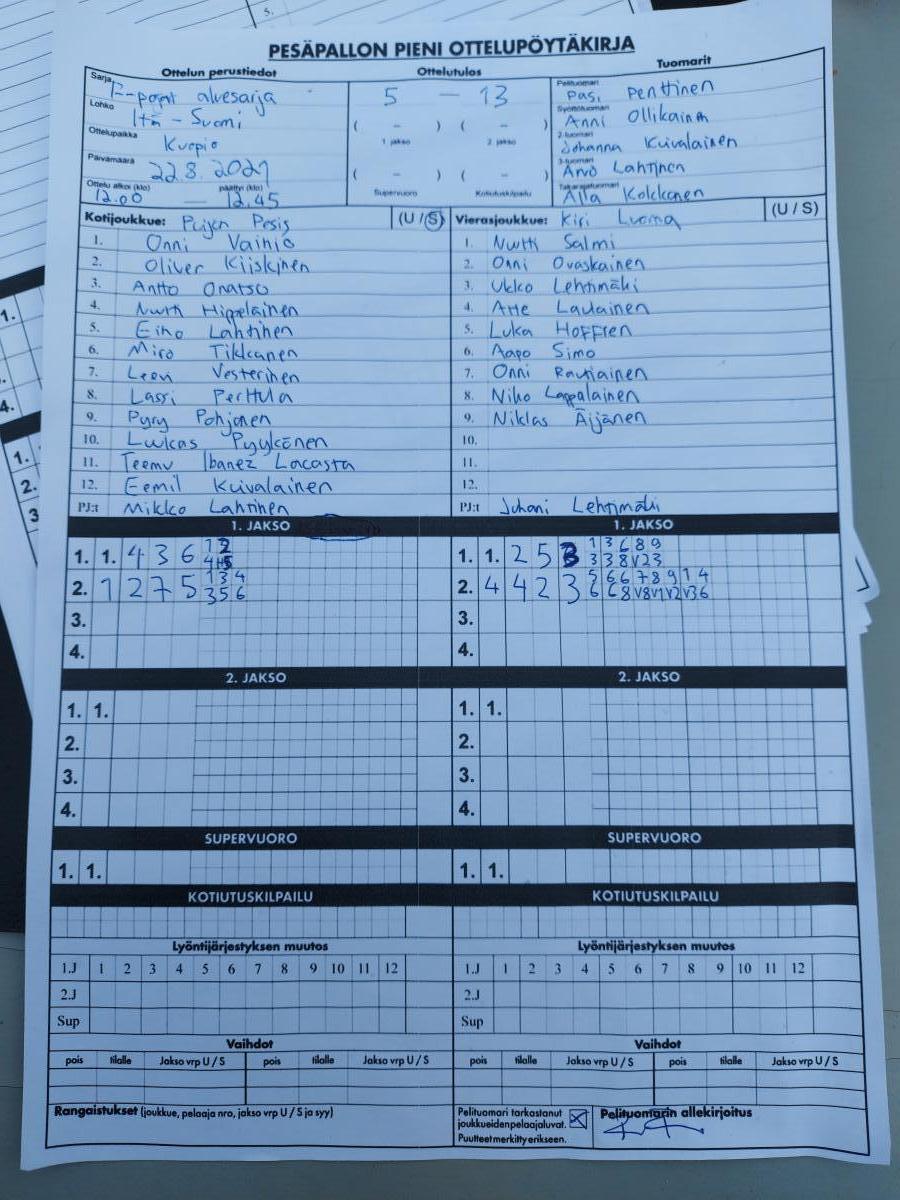 5.
PESÄPALLON PIENI OTTELUPÖYTÄKIRJA
Ottelun perustiedot
Ottelutulos
Tuomarit
Sarja
F-pojat aluesarja
Lohko
Itä-Suomi
Ottelupaikka
Kuopio
Päivämäärä
22.8.2021
Ottelu alkoi (klo) päättyi (klo)
12.00 — 12.45
5 — 13
( – ) ( – )
1. jakso 2. jakso
( – ) ( – )
Supervuoro Kotiutuskilpailu
Pelituomari
Pasi Penttinen
Syöttötuomari
Anni Ollikainen
2-tuomari
Johanna Kuivalainen
3-tuomari
Arvo Lahtinen
Takarajatuomari
Alla Kokkonen
Kotijoukkue: Puijon Pesis (U / S)
1. Onni Vainio
2. Oliver Kiiskinen
3. Antto Onatsu
4. Nuutti Hippeläinen
5. Eino Lahtinen
6. Miro Tikkanen
7. Leevi Vesterinen
8. Lassi Perttula
9. Pyry Pohjonen
10. Luukas Pyykönen
11. Teemu Ibanez Lacasta
12. Eemil Kuivalainen
PJ:t Mikko Lahtinen
Vierasjoukkue: Kiri Luoma (U / S)
1. Nuutti Salmi
2. Onni Ovaskainen
3. Ukko Lehtimäki
4. Atte Laulainen
5. Luka Hoffren
6. Aapo Simo
7. Onni Rautiainen
8. Niko Lappalainen
9. Niklas Äijänen
10.
11.
12.
PJ:t Juhani Lehtimäki
1. JAKSO
1. 1. 4 3 6 1 2
2. 1 2 7 5 1 3 4
3 5 6
3.
4.
1. JAKSO
1. 1. 2 5 3 1 3 6 8 9
3 3 8 V2 3
2. 4 4 2 3 5 6 6 7 8 9 1 4
6 6 8 V8 V1 V2 V3 6
3.
4.
2. JAKSO
1. 1.
2.
3.
4.
2. JAKSO
1. 1.
2.
3.
4.
SUPERVUORO
1. 1.
SUPERVUORO
1. 1.
KOTIUTUSKILPAILU
KOTIUTUSKILPAILU
Lyöntijärjestyksen muutos
1.J 1 2 3 4 5 6 7 8 9 10 11 12
2.J
Sup
Lyöntijärjestyksen muutos
1.J 1 2 3 4 5 6 7 8 9 10 11 12
2.J
Sup
Vaihdot
pois tilalle Jakso vrp U / S pois tilalle Jakso vrp U / S
Vaihdot
pois tilalle Jakso vrp U / S pois tilalle Jakso vrp U / S
Rangaistukset (joukkue, pelaaja nro, jakso vrp U / S ja syy)
Pelituomari tarkastanut
joukkueiden pelaajaluvat.
Puutteet merkitty erikseen.
Pelituomarin allekirjoitus
1.
4.
1.
2.
3